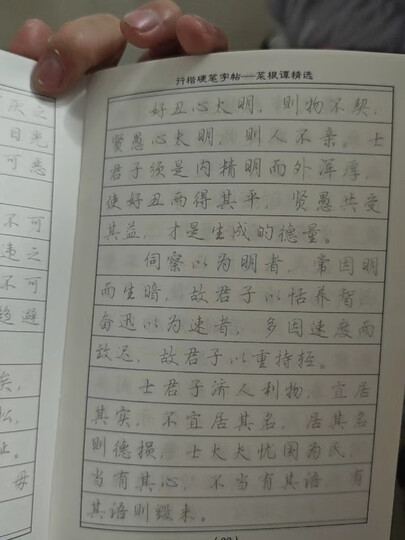 行楷硬笔字帖——菜根谭精选
好丑心太明，则物不契，
贤愚心太明，则人不亲。士
君子须是内精明而外浑厚，
使好丑两得其平，贤愚共受
其益，才是生成的德量。
伺察以为明者，常因明
而生暗，故君子以恬养智；
奋迅以为速者，多因速度而
致迟，故君子以重持轻。
士君子济人利物，宜居
其实，不宜居其名，居其名
则德损，士大夫忧国为民，
当有其心，不当有其语，有
其语则毁来。
灰之
日光
可悉
不可
违之
不可
趋避
矣，
么，
止。
毋